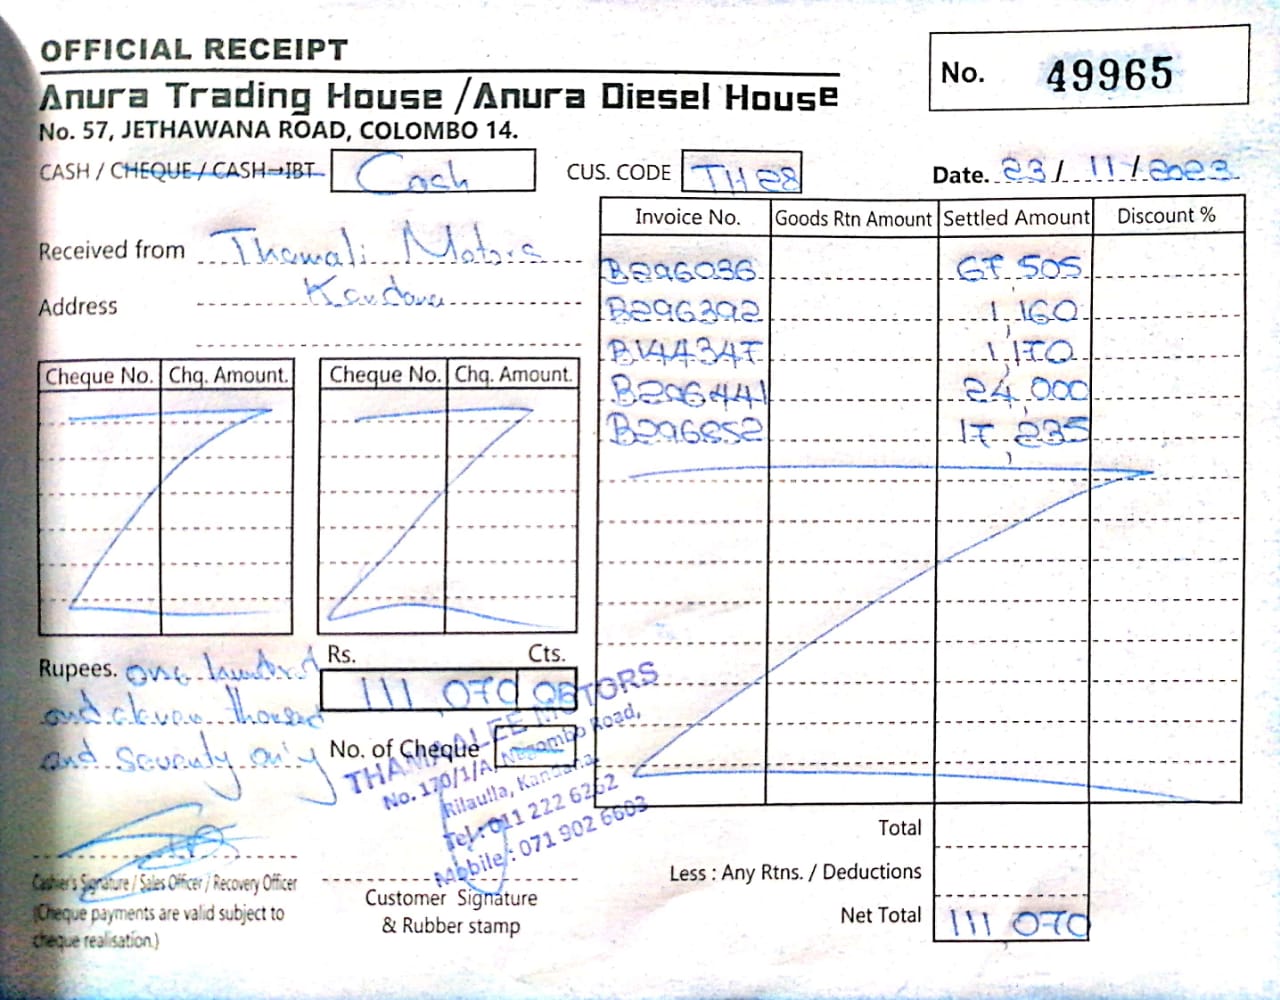 OFFICIAL RECEIPT
No. 49965
Anura Trading House / Anura Diesel House
No. 57, JETHAWANA ROAD, COLOMBO 14.
CASH / CHEQUE / CASH→IBT Cash CUS. CODE TH28 Date. 23/11/2023
Received from Thamali Motors
Address Kandana
Invoice No. Goods Rtn Amount Settled Amount Discount %
B296036 67,505
B296392 1,160
B144347 1,170
B296441 24,000
B296852 17,235
Cheque No. Chq. Amount. Cheque No. Chq. Amount.
Rupees. one hundred
and eleven thousand
and seventy only
Rs. Cts.
111,070 00
No. of Cheque
THAMAALEE MOTORS
No. 170/1/A, Negombo Road,
Rilaulla, Kandana.
Tel : 011 222 6262
Mobile : 071 902 6603
Cashier's Signature / Sales Officer / Recovery Officer
(Cheque payments are valid subject to
cheque realisation.)
Customer Signature
& Rubber stamp
Total
Less : Any Rtns. / Deductions
Net Total 111,070